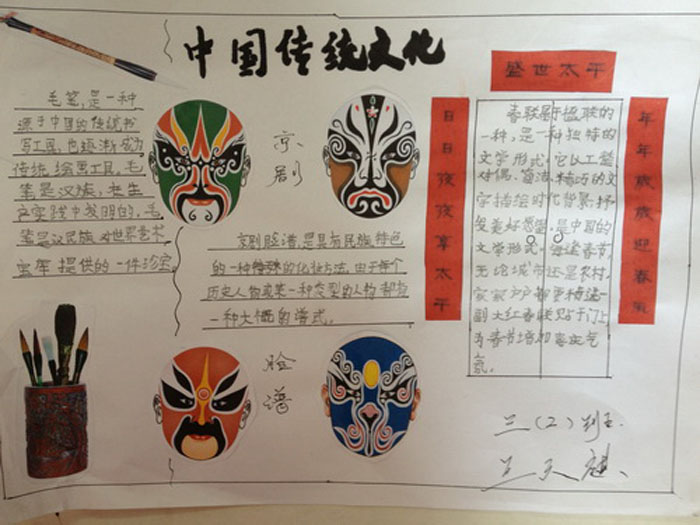 中国传统文化
毛笔,是一种
源于中国的传统书
写工具,也逐渐成为
传统绘画工具,毛
笔是汉族先生
产实践中发明的,毛
笔是汉民族对世界艺术
宝库提供的一件珍宝。
京剧
京剧脸谱,是具有民族特色
的一种特殊的化妆方法,由于每个
历史人物或某一种类型的人物都有
一种大概的谱式。
脸谱
盛世太平
日日夜夜享太平
春联属于楹联的
一种,是一种独特的
文学形式,它以工整
对偶、简洁、精巧的文
字描绘时代背景,抒
发美好愿望,是中国的
文学形式。每逢春节,
无论城市还是农村,
家家户户都要精选一
副大红春联贴于门上,
为春节增加喜庆气
氛。
年年岁岁迎春气
三(2)班